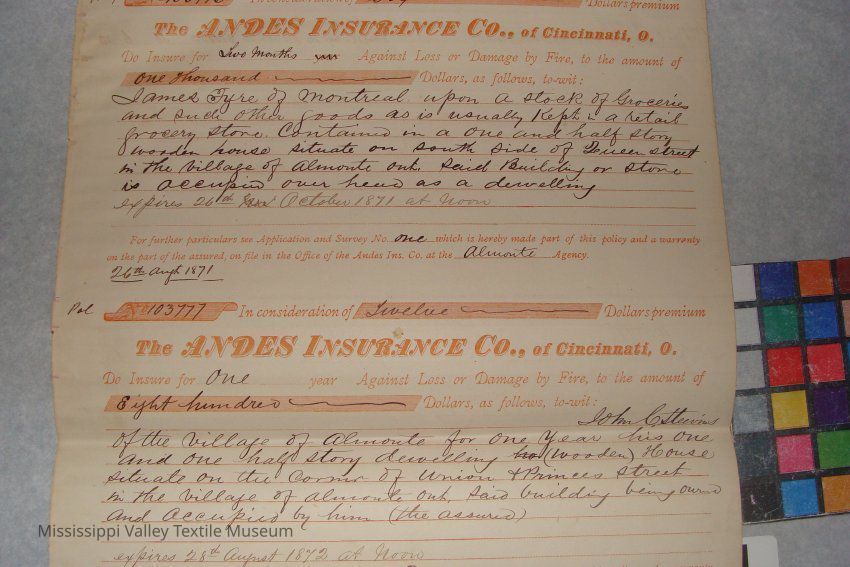 Dollars premium
The ANDES INSURANCE CO., of Cincinnati, O.
Do Insure for Two Months year Against Loss or Damage by Fire, to the amount of
One thousand Dollars, as follows, to-wit:
James Fyre of Montreal upon a stock of Groceries
and such other goods as is usually Kept in a retail
grocery store. Contained in a one and half story
wooden house situate on south side of Queen street
in the village of Almonte ont, Said Building or Store
is occupied over head as a dewelling
expires 26th October 1871 at Noon
For further particulars see Application and Survey No. one which is hereby made part of this policy and a warranty
on the part of the assured, on file in the Office of the Andes Ins. Co. at the Almonte Agency.
26th Augt 1871
Pol No. 103777 In consideration of Twelve Dollars premium
The ANDES INSURANCE CO., of Cincinnati, O.
Do Insure for One year Against Loss or Damage by Fire, to the amount of
Eight hundred Dollars, as follows, to-wit:
John C Stevens
of the village of Almonte for one Year his one
and one half story dewelling (wooden) House
situate on the corner of Union & Princes street
in the village of Almonte ont, said building being owned
and occupied by him (the assured)
Mississippi Valley Textile Museum
expires 28th August 1872 at Noon